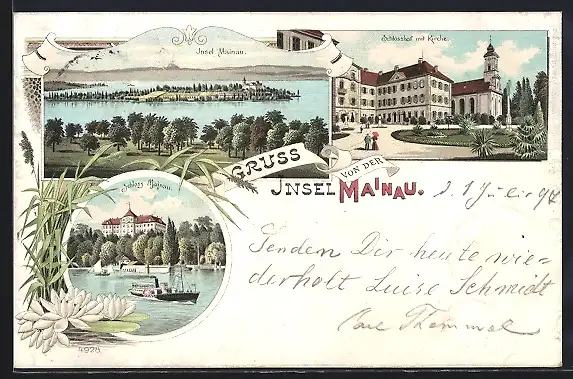 Insel Mainau.
Schlosshof mit Kirche.
GRUSS
VON DER
INSEL MAINAU.
Schloss Mainau.
d. 1 Juli 97
Senden Dir heute wie-
derholt Luise Schmidt
Carl Themmal
4928